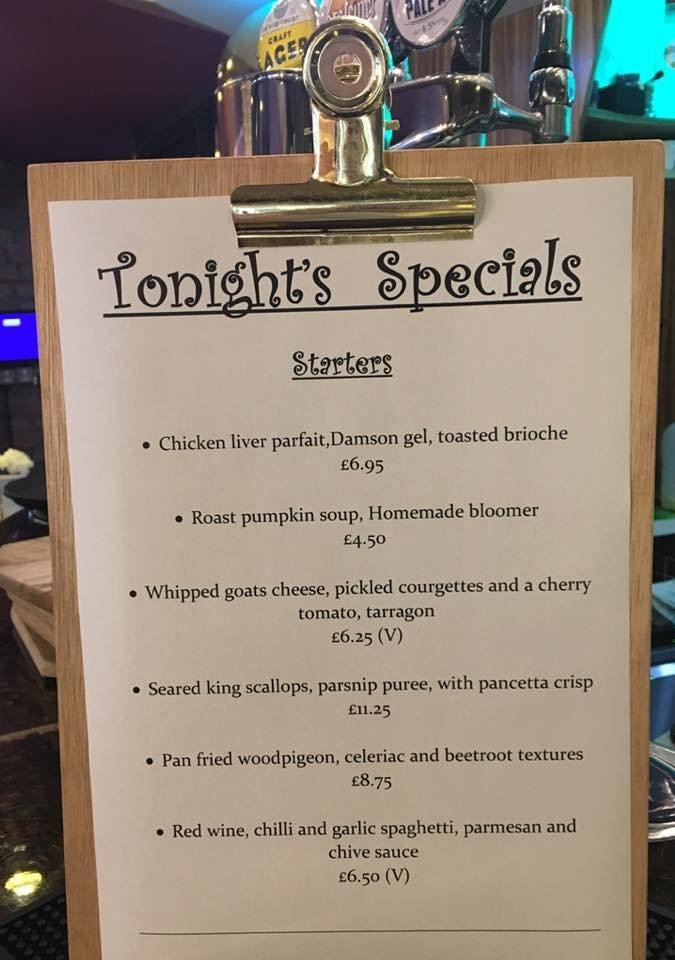 CRAFT
LAGER
PALE
Tonight's Specials
Starters
• Chicken liver parfait,Damson gel, toasted brioche
£6.95
• Roast pumpkin soup, Homemade bloomer
£4.50
• Whipped goats cheese, pickled courgettes and a cherry
tomato, tarragon
£6.25 (V)
• Seared king scallops, parsnip puree, with pancetta crisp
£11.25
• Pan fried woodpigeon, celeriac and beetroot textures
£8.75
• Red wine, chilli and garlic spaghetti, parmesan and
chive sauce
£6.50 (V)